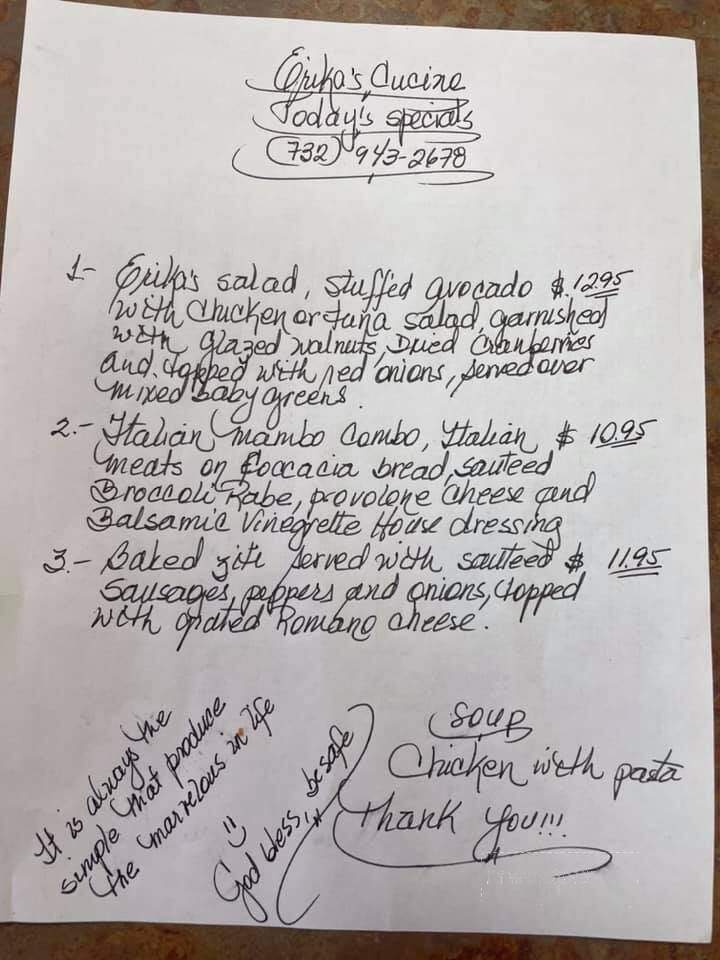 Erika's Cucine
Today's specials
(732) 943-2678
1- Erika's salad, stuffed avocado $.12.95
with chicken or tuna salad, garnished
with glazed walnuts, Dried Cranberries
and topped with red onions, served over
mixed baby greens.
2.- Italian mambo combo, Italian $ 10.95
meats on foccacia bread, sauteed
Broccoli Rabe, provolone cheese and
Balsamic Vinegrette House dressing
3.- Baked ziti served with sauteed $ 11.95
sausages, peppers and onions, topped
with grated Romano cheese.
It is always the
simple that produce
the marvelous in life
God bless, be safe
Soup
Chicken with pasta
Thank you!!!